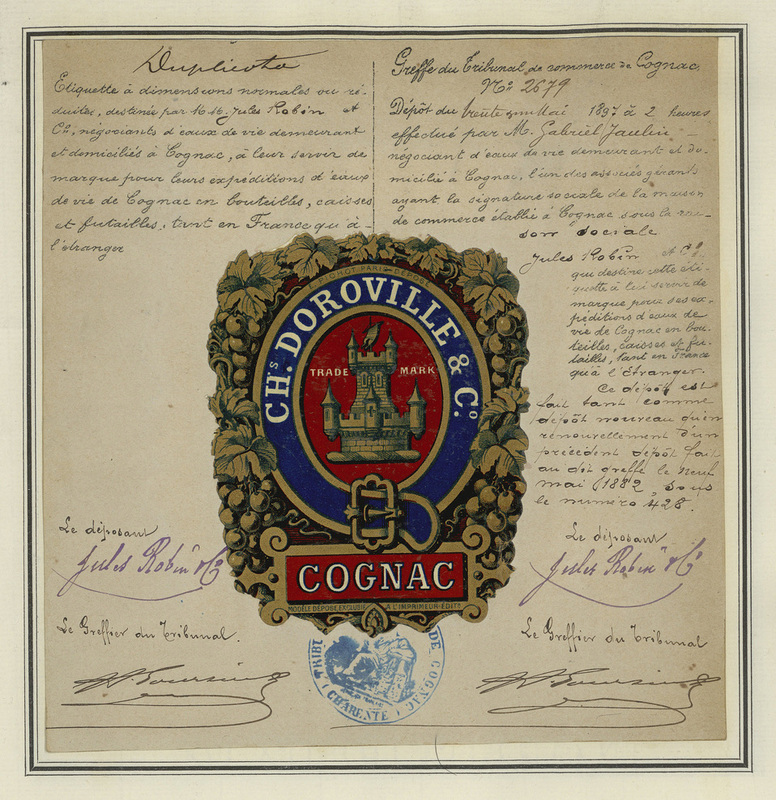 Duplicata
Etiquette à dimensions normales ou ré-
duites, destinée par M.M. Jules Robin et
Cie, négociants d'eaux de vie demeurant
et domiciliés à Cognac, à leur servir de
marque pour leurs expéditions d'eaux
de vie de Cognac en bouteilles, caisses
et futailles, tant en France qu'à
l'étranger
Greffe du Tribunal de commerce de Cognac
No 2679
Dépôt du trente et un Mai 1897 à 2 heures
effectué par M. Gabriel Jaulin
négociant d'eaux de vie demeurant et do-
micilié à Cognac, l'un des associés gérants
ayant la signature sociale de la maison
de commerce établie à Cognac sous la rai-
son sociale
Jules Robin et Cie,
qui destine cette éti-
quette à lui servir de
marque pour ses ex-
péditions d'eaux de
vie de Cognac en bou-
teilles, caisses et fu-
tailles, tant en France
qu'à l'étranger.
Ce dépôt est
fait tant comme
dépôt nouveau qu'en
renouvellement d'un
précédent dépôt fait
au dit greffe le neuf
mai 1882, sous
le numéro 428.
PICHOT PARIS DÉPOSÉ
CHs. DOROVILLE & Co.
TRADE MARK
COGNAC
MODÈLE DÉPOSÉ EXCLUSIF À L'IMPRIMEUR-ÉDITR
Le déposant
Jules Robin & Co
Le Greffier du Tribunal.
Le déposant
Jules Robin & Co
Le Greffier du Tribunal
TRIBU DE COGNAC
(CHARENTE)